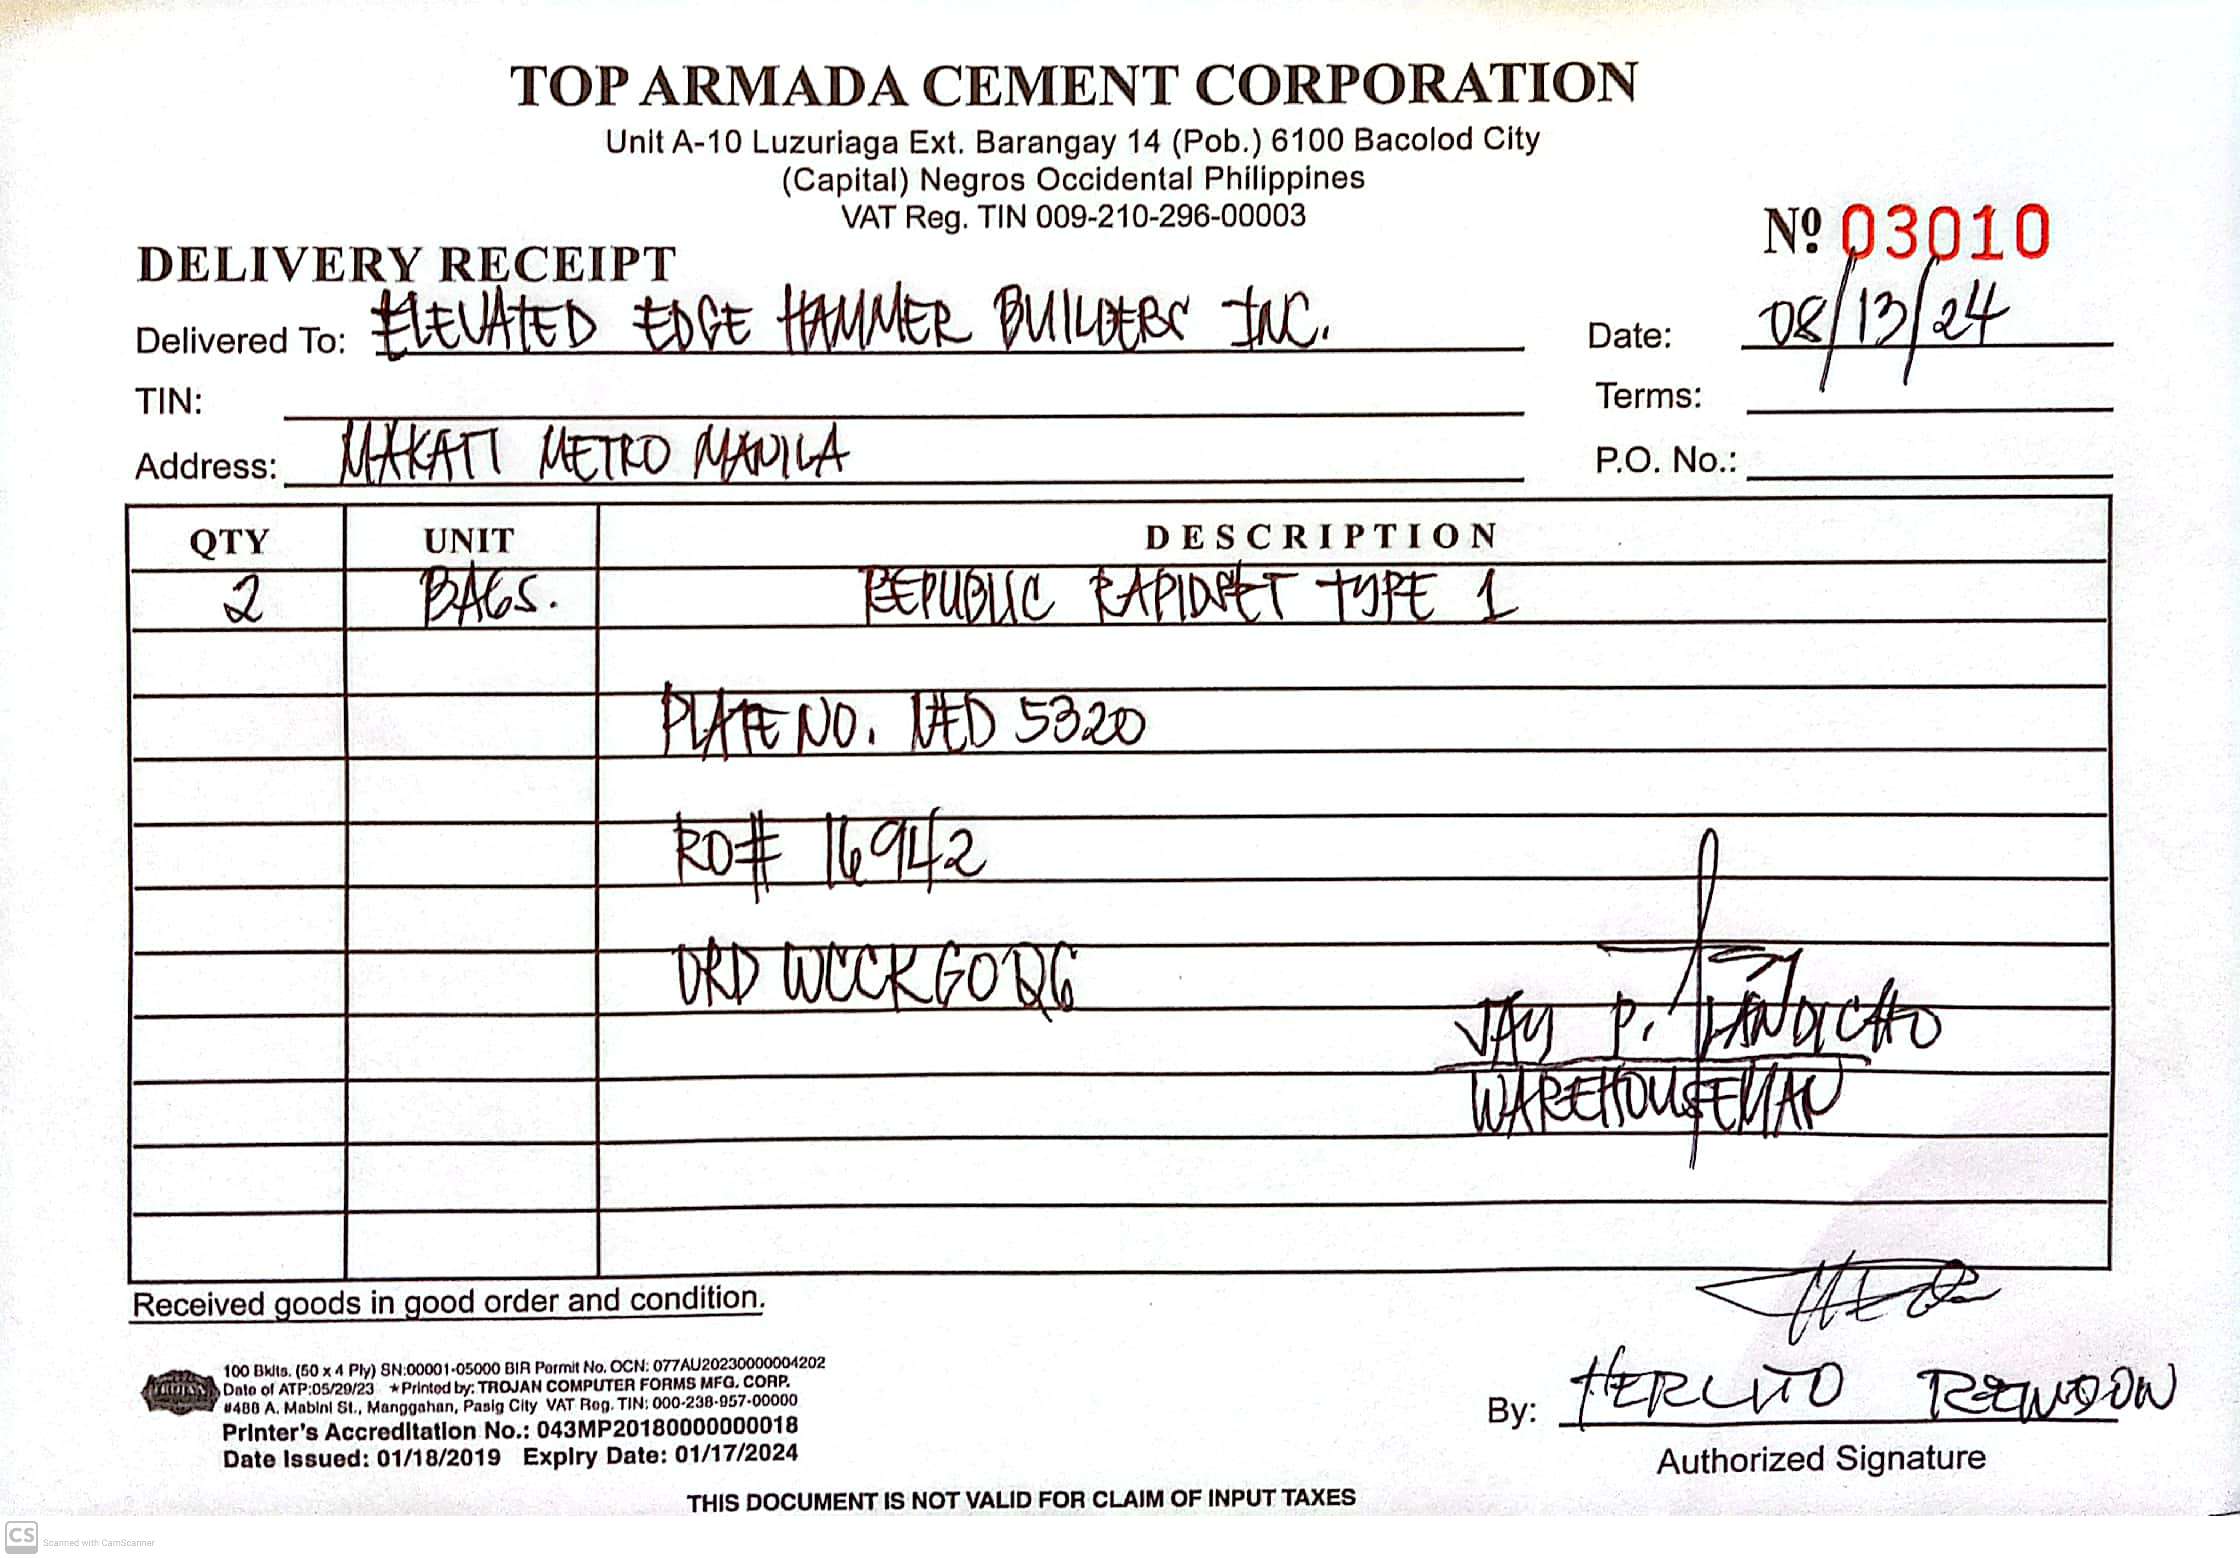 TOP ARMADA CEMENT CORPORATION
Unit A-10 Luzuriaga Ext. Barangay 14 (Pob.) 6100 Bacolod City
(Capital) Negros Occidental Philippines
VAT Reg. TIN 009-210-296-00003
Nº 03010
DELIVERY RECEIPT
Delivered To: ELEVATED EDGE HAMMER BUILDERS INC. Date: 08/13/24
TIN: Terms:
Address: MAKATI METRO MANILA P.O. No.:
QTY UNIT DESCRIPTION
2 BAGS. REPUBLIC RAPIDSET TYPE 1
PLATE NO. NED 5320
RO# 16942
JAY P. LANDICHO
WAREHOUSEMAN
Received goods in good order and condition.
100 Bklts. (50 x 4 Ply) SN:00001-05000 BIR Permit No. OCN: 077AU20230000004202
Date of ATP:05/29/23 ★Printed by: TROJAN COMPUTER FORMS MFG. CORP.
TROJAN
#488 A. Mabini St., Manggahan, Pasig City VAT Reg. TIN: 000-238-957-00000
Printer's Accreditation No.: 043MP20180000000018
Date Issued: 01/18/2019 Expiry Date: 01/17/2024
By: HERLITO
Authorized Signature
THIS DOCUMENT IS NOT VALID FOR CLAIM OF INPUT TAXES
CS Scanned with CamScanner